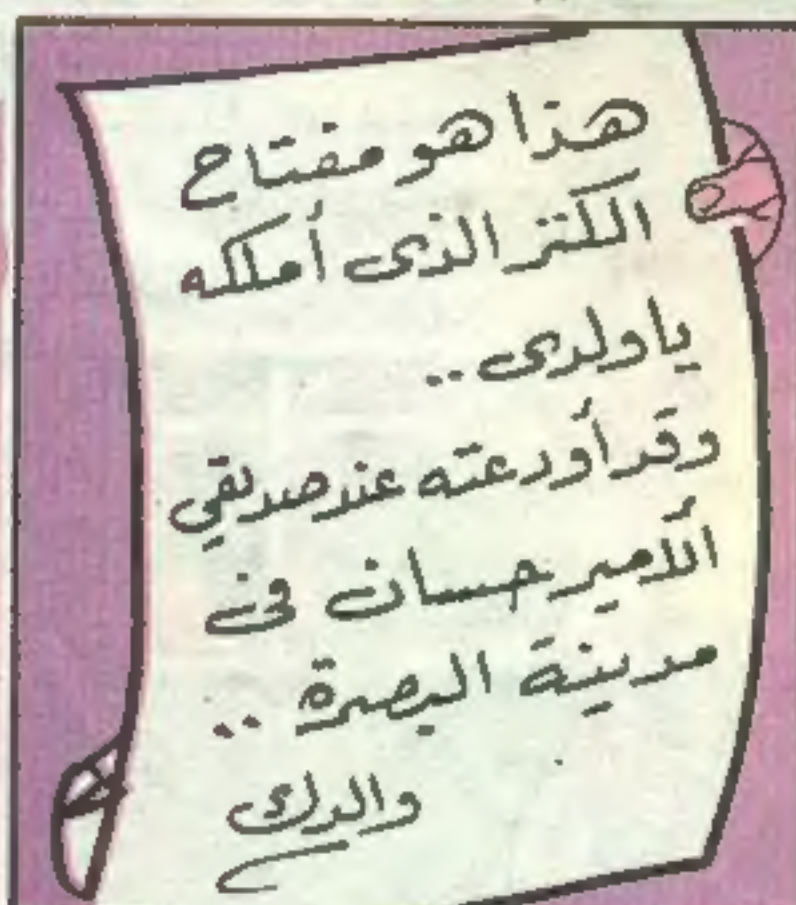 هذا هو مفتاح
الكنز الذى أملكه
ياولدى ..
وقد أودعته عند صديقي
الأمير حسان فى
مدينة البصرة ..
والدك